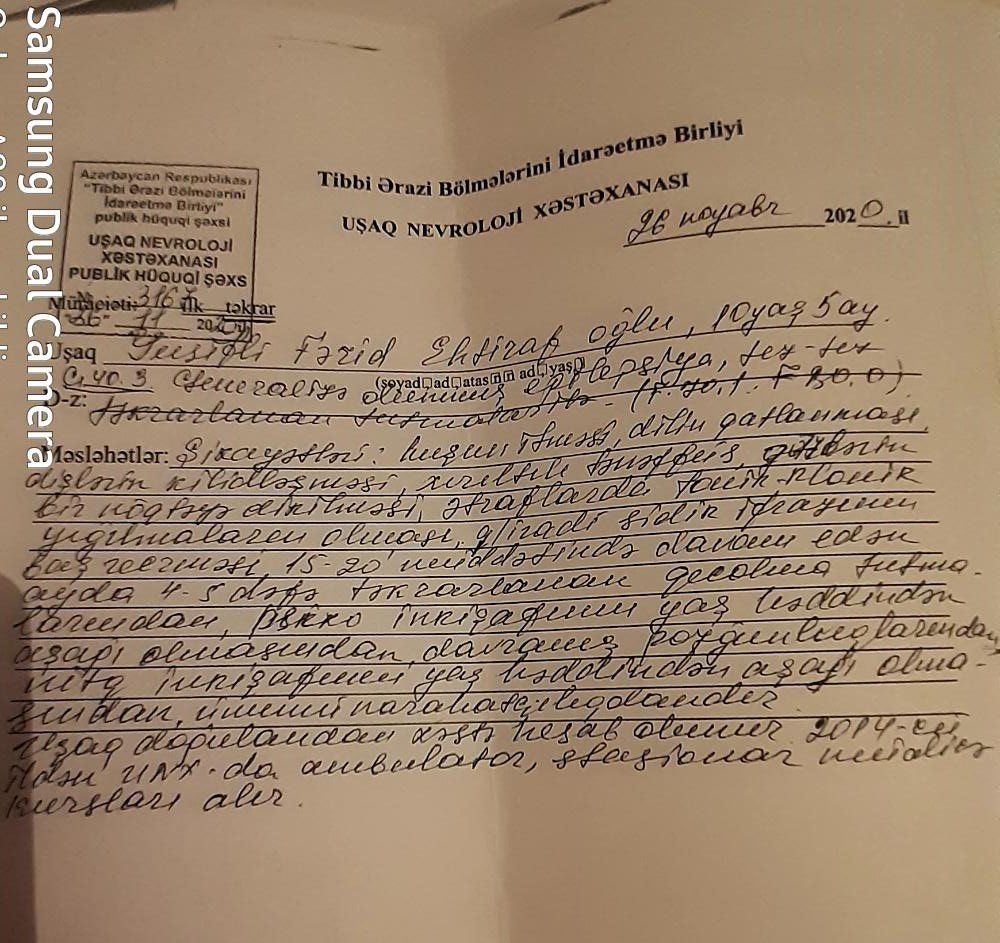 Samsung Dual Camera
Tibbi Ərazi Bölmələrini İdarəetmə Birliyi
UŞAQ NEVROLOJİ XƏSTƏXANASI
26 noyabr 2020.il
Azərbaycan Respublikası
"Tibbi Ərazi Bölmələrini
İdarəetmə Birliyi"
publik hüquqi şəxsi
UŞAQ NEVROLOJİ
XƏSTƏXANASI
PUBLİK HÜQUQİ ŞƏXS
Müraciəti: ilk təkrar
11
Uşaq Yusifli Fərid Ehtiraf oğlu, 10 yaş 5 ay.
(soyad ad atasının ad yaş)
G.40.3 epilepsiya, tez-tez
D-z: təkrarlanan tutmalarla (F.70.1. F 80.0)
Məsləhətlər: Şikayətləri: huşun itməsi, dilin qatlanması,
dişlərin kilidləşməsi, xırıltılı tənəffüs, gözlərin
bir nöqtəyə dikilməsi, ətraflarda tonik-klonik
yığılmaların olması, q/iradi sidik ifrazının
baş verməsi, 15-20' müddətində davam edən
ayda 4-5 dəfə təkrarlanan tutma-
larından, psixo inkişafının yaş həddindən
aşağı olmasından, davranış pozğunluqlarından
nitq inkişafının yaş həddindən aşağı olma-
sından, ümumi narahatçılıqdandır.
Uşaq doğulandan xəstə hesab olunur. 2014-cü
ildən UNX-da ambulator, stasionar müalicə
kursları alır.